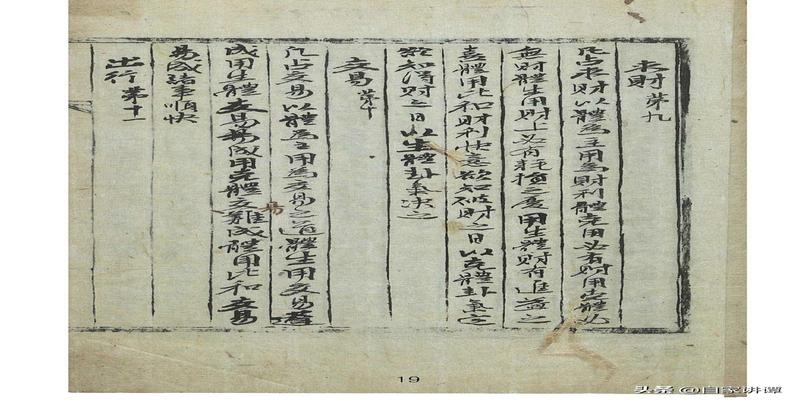 求財第九
凡占求財以體為主用為財利體克用必有財用克體必
無財體生用財上必有耗損之憂用生體財有進益之
喜體用比和財利快意欲知破財之日以克體卦氣定
欲知得財之日以生體卦氣決之
交易第十
凡占交易以體為主用為交易之道體生用交易遲
成用生體交易易成用克體交易難成體用比和交易
易成諸事順快
出行第十一
19
头条 @自家讲谭